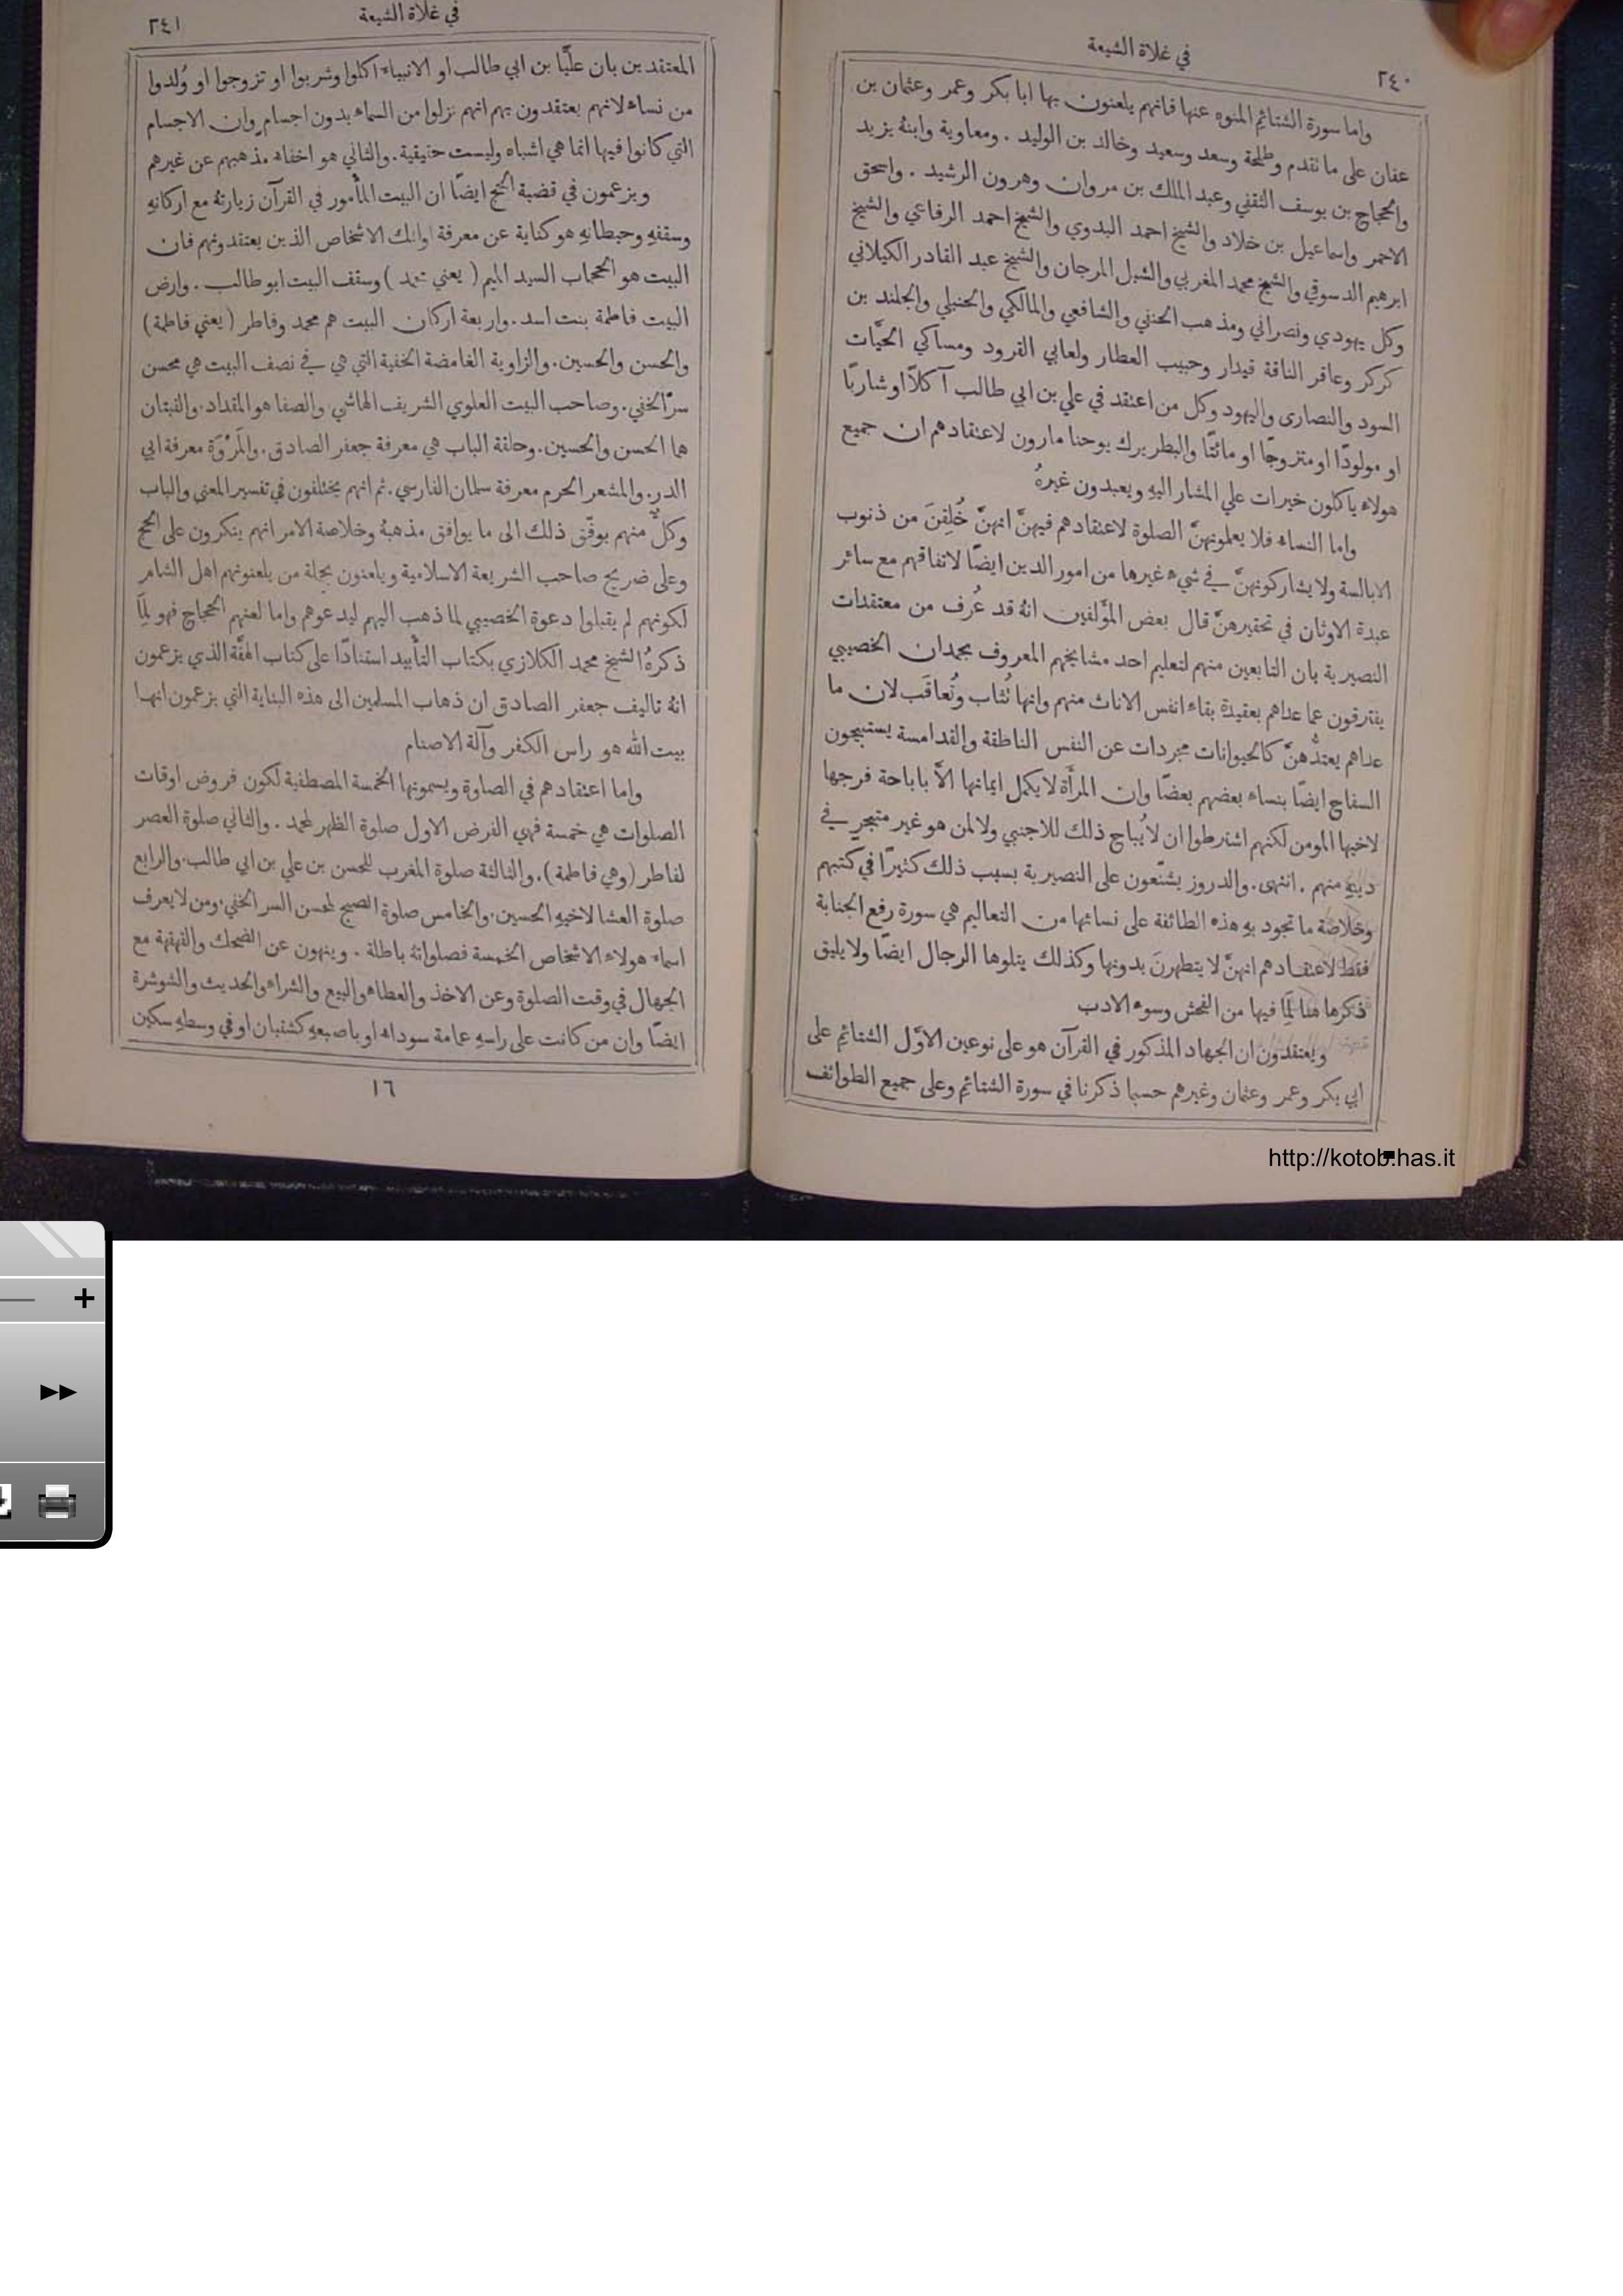 في غلاة الشيعة
٢٤٠
واما سورة الشتائم المنوه عنها فانهم يلعنون بها ابا بكر وعمر وعثمان بن
عفان على ما تقدم وطلحة وسعد وسعيد وخالد بن الوليد . ومعاوية وابنهُ يزيد
والحجاج بن يوسف الثقفي وعبد الملك بن مروان وهرون الرشيد . واسحق
الاحمر واسماعيل بن خلاد والشيخ احمد البدوي والشيخ احمد الرفاعي والشيخ
ابرهيم الدسوقي والشيخ محمد المغربي والشبل المرجان والشيخ عبد القادر الكيلاني
وكل يهودي ونصراني ومذهب الحنفي والشافعي والمالكي والحنبلي والجلند بن
كركر وعافر الناقة قيدار وحبيب العطار ولعابي القرود ومساكي الحيَّات
السود والنصارى واليهود وكل من اعتقد في علي بن ابي طالب آكلاً او شاربًا
او مولودًا او متزوجًا او مائتًا والبطريرك يوحنا مارون لاعتقادهم ان جميع
هولاء ياكلون خيرات علي المشار اليهِ ويعبدون غيرهُ
واما النساء فلا يعلمونهنَّ الصلوة لاعتقادهم فيهنَّ انهنَّ خُلِقنَ من ذنوب
الابالسة ولا يشاركونهنَّ في شيء غيرها من امور الدين ايضًا لاتفاقهم مع سائر
عبدة الاوثان في تحقيرهنَّ قال بعض المؤلفين انهُ قد عُرف من معتقدات
النصيرية بان التابعين منهم لتعليم احد مشايخهم المعروف بحمدان الخصيبي
يفترقون عما عداهم بعقيدة بقاء انفس الاناث منهم وانها تُثاب وتُعاقَب لان ما
عداهم يعتدُّهنَّ كالحيوانات مجردات عن النفس الناطقة والقدامسة يستبيحون
السفاح ايضًا بنساء بعضهم بعضًا وان المرأة لا يكمل ايمانها الاَّ باباحة فرجها
لاخيها المومن لكنهم اشترطوا ان لا يُباح ذلك للاجنبي ولا لمن هو غير متبحر في
دينهِ منهم . انتهى . والدروز يشنّعون على النصيرية بسبب ذلك كثيرًا في كتبهم
وخلاصة ما تجود بهِ هذه الطائفة على نسائها من التعاليم هي سورة رفع الجنابة
فقط لاعتقادهم انهنَّ لا يتطهرنَ بدونها وكذلك يتلوها الرجال ايضًا ولا يليق
ذكرها هنا لِمَا فيها من الفحش وسوء الادب
ويعتقدون ان الجهاد المذكور في القرآن هو على نوعين الاوَّل الشتائم على
ابي بكر وعمر وعثمان وغيرهم حسبما ذكرنا في سورة الشتائم وعلى جميع الطوائف
http://kotob.has.it
في غلاة الشيعة
٢٤١
المعتقدين بان عليًّا بن ابي طالب او الانبياء اكلوا وشربوا او تزوجوا او وُلدوا
من نساء لانهم يعتقدون بهم انهم نزلوا من السماء بدون اجسام وان الاجسام
التي كانوا فيها انما هي اشباه وليست حقيقية . والثاني هو اخفاء مذهبهم عن غيرهم
ويزعمون في قضية الحج ايضًا ان البيت المأْمور في القرآن زيارتهُ مع اركانهِ
وسقفهِ وحيطانهِ هو كناية عن معرفة اولئك الاشخاص الذين يعتقدونهم فان
البيت هو الحجاب السيد الميم ( يعني محمد ) وسقف البيت ابو طالب . وارض
البيت فاطمة بنت اسد . واربعة اركان البيت هم محمد وفاطر ( يعني فاطمة )
والحسن والحسين . والزاوية الغامضة الخفية التي هي في نصف البيت هي محسن
سرّ الخفي . وصاحب البيت العلوي الشريف الهاشمي والصفا هو المقداد . والقبتان
هما الحسن والحسين . وحلقة الباب هي معرفة جعفر الصادق . والمَرْوَة معرفة ابي
الدر . والمشعر الحرم معرفة سلمان الفارسي . ثم انهم يختلفون في تفسير المعنى والباب
وكلٌّ منهم يوفّق ذلك الى ما يوافق مذهبهُ وخلاصة الامر انهم ينكرون على الحج
وعلى ضريح صاحب الشريعة الاسلامية ويلعنون بجملة من يلعنونهم اهل الشام
لكونهم لم يقبلوا دعوة الخصيبي لما ذهب اليهم ليدعوهم واما لعنهم الحجاج فهو لِمَا
ذكرهُ الشيخ محمد الكلازي بكتاب التأْييد استنادًا على كتاب الهفَّة الذي يزعمون
انهُ تاليف جعفر الصادق ان ذهاب المسلمين الى هذه البناية التي يزعمون انها
بيت الله هو راس الكفر وآلة الاصنام
واما اعتقادهم في الصلوة ويسمونها الخمسة المصطفية لكون فروض اوقات
الصلوات هي خمسة فهي الفرض الاول صلوة الظهر لمحمد . والثاني صلوة العصر
لفاطر ( وهي فاطمة ) . والثالثة صلوة المغرب للحسن بن علي بن ابي طالب . والرابع
صلوة العشا لاخيهِ الحسين . والخامس صلوة الصبح لمحسن السر الخفي . ومن لا يعرف
اسماء هولاء الاشخاص الخمسة فصلواتهُ باطلة . وينهون عن الضحك والقهقهة مع
الجهال في وقت الصلوة وعن الاخذ والعطاء والبيع والشراء والحديث والشوشرة
ايضًا وان من كانت على راسهِ عمامة سوداء او باصبعهِ كشتبان او في وسطهِ سكين
١٦